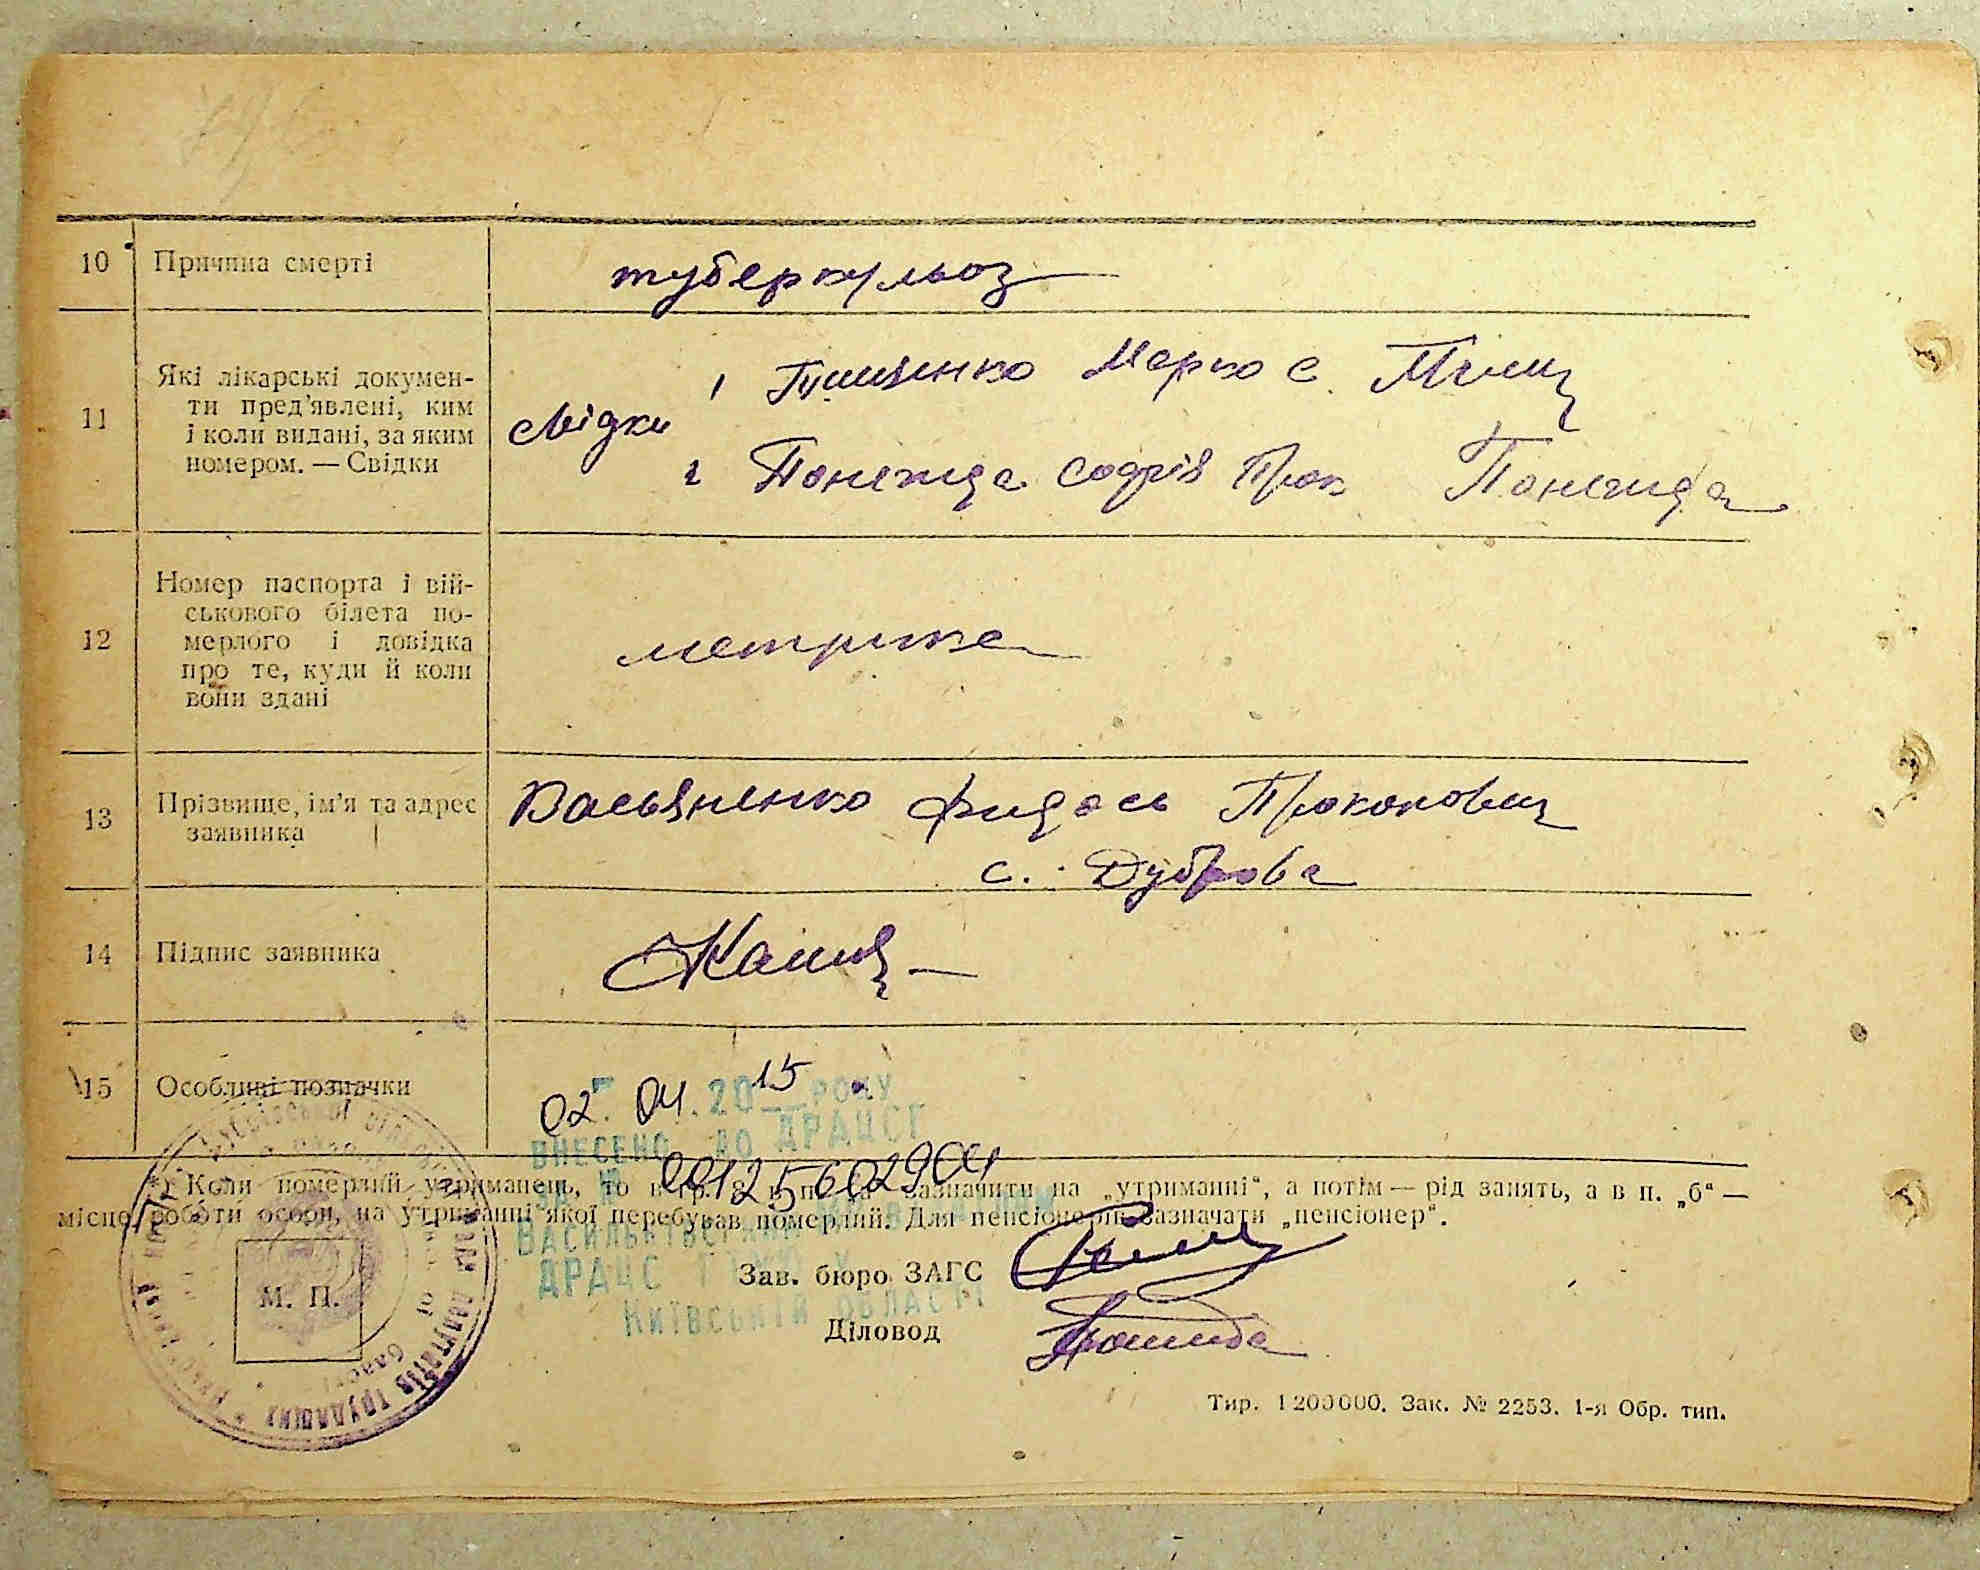 10 Причина смерті туберкульоз
11 Які лікарські докумен-
ти пред'явлені, ким
і коли видані, за яким
номером. — Свідки
свідки 1 Марко С.
2 Понежда Софія Прок Понежда
12 Номер паспорта і вій-
ськового білета по-
мерлого і довідка
про те, куди й коли
вони здані
метрика
13 Прізвище, ім'я та адрес
заявника
Васьяненко Федось Прокопович
с. Дуброва
14 Підпис заявника
15 Особливі позначки
02. 04. 2015 РОКУ
ВНЕСЕНО ДО ДРАЦСГ
№ 00125602904
*) Коли померлий утриманець, то в гр. 8 в п. „а“ зазначити на „утриманні“, а потім — рід занять, а в п. „б“ —
місце роботи особи, на утриманні якої перебував померлий. Для пенсіонерів зазначати „пенсіонер“.
ДРАЦС
Зав. бюро ЗАГС
КИЇВСЬКІЙ ОБЛАСТІ
М. П.
Діловод
депутатів трудящих
Тир. 1 200 000. Зак. № 2253. 1-я Обр. тип.